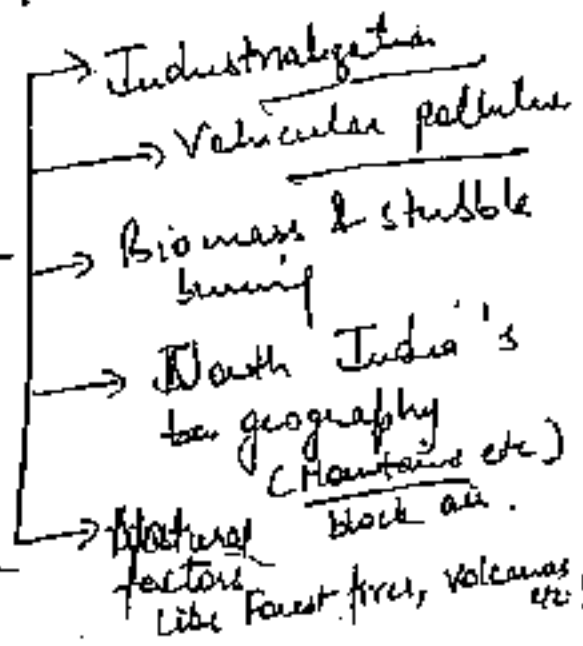 Industrialization
Vehicular pollution
Biomass & stubble
burning
North India's
geography
(Mountains etc)
block air.
Natural
factors
like Forest fires, volcanoes
etc.